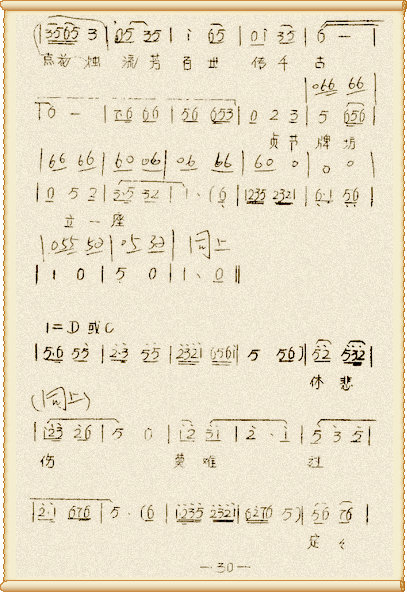 |3565 3 | 05 35 | i 65 | 0i 35 | 6 — |
烛 流 芳 百 世 传 千 古
|066 66|
6 — | 0 2 3 | 5 656 |
贞 节 牌 坊
|66 66 | 60 06 | 06 66 | 60 0 | 0 0 |
| 0 5 2 | 3·5 32 | 1·(6 | 1235 2321 | 6·1 56 |
立 一 座
|055 50 | 05 30 | 同上
| 1 0 | 5 0 | 1· 0 ‖
1=D 或 C
|5·6 55 | 2·3 55 | 2321 6561 | 5 56) | 52 532 |
休 悲
(同上)
|123 26 | 5 0 | i2 3i | 2·i | 5 3 5 |
伤 莫 难 过
|2·1 676 | 5·(6 | 1235 2321 | 6276 5) | 56 76 |
—30—